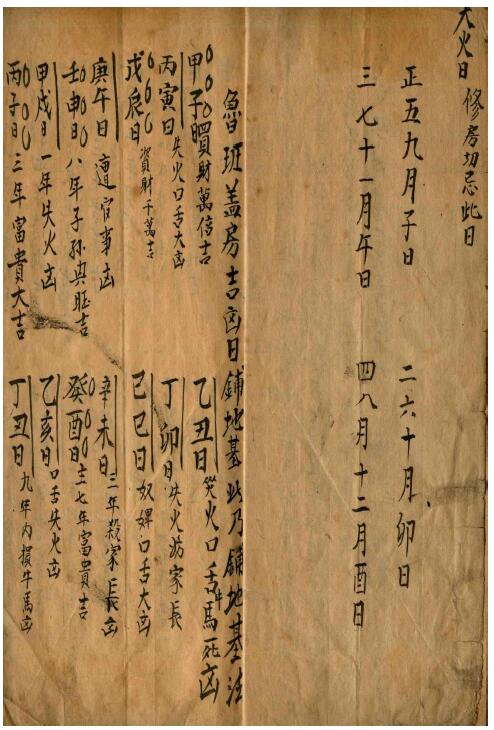 大火日 修房切忌此日
正五九月子日 二六十月卯日
三七十一月午日 四八月十二月酉日
魯班盖房吉凶日 鋪地基 此乃鋪地基法
甲子 買財萬倍吉 乙丑日 災火口舌牛馬死凶
丙寅日 失火口舌大凶 丁卯日 失火妨家長
戊辰日 資財千萬吉 己巳日 奴婢口舌大凶
庚午日 遭官事凶 辛未日 三年殺家長凶
壬申日 八年子孫興旺吉 癸酉日 主七年富貴吉
甲戌日 一年失火凶 乙亥日 口舌失火凶
丙子日 三年富貴大吉 丁丑日 九年内損牛馬凶